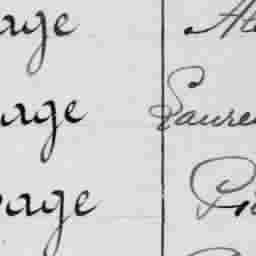 age At
age Laure
age Pi